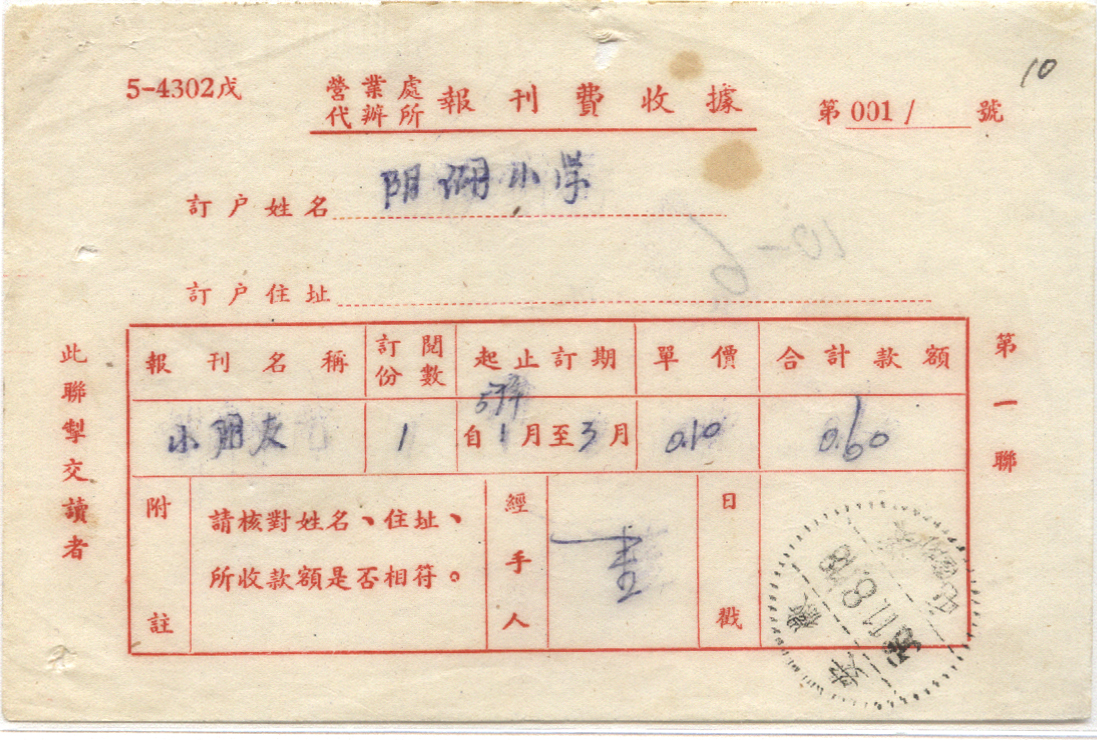 10
5-4302戊
營業處
代辦所
報刊費收據
第001/號
訂户姓名 阴湖小学
10-6
訂户住址
報刊名稱 訂閱份數 起止訂期 單價 合計款額
小朋友 1 57年 自1月至3月 0.10 0.60
附註 請核對姓名、住址、
所收款額是否相符。
經手人
日戳
安徽
此聯掣交讀者
第一聯